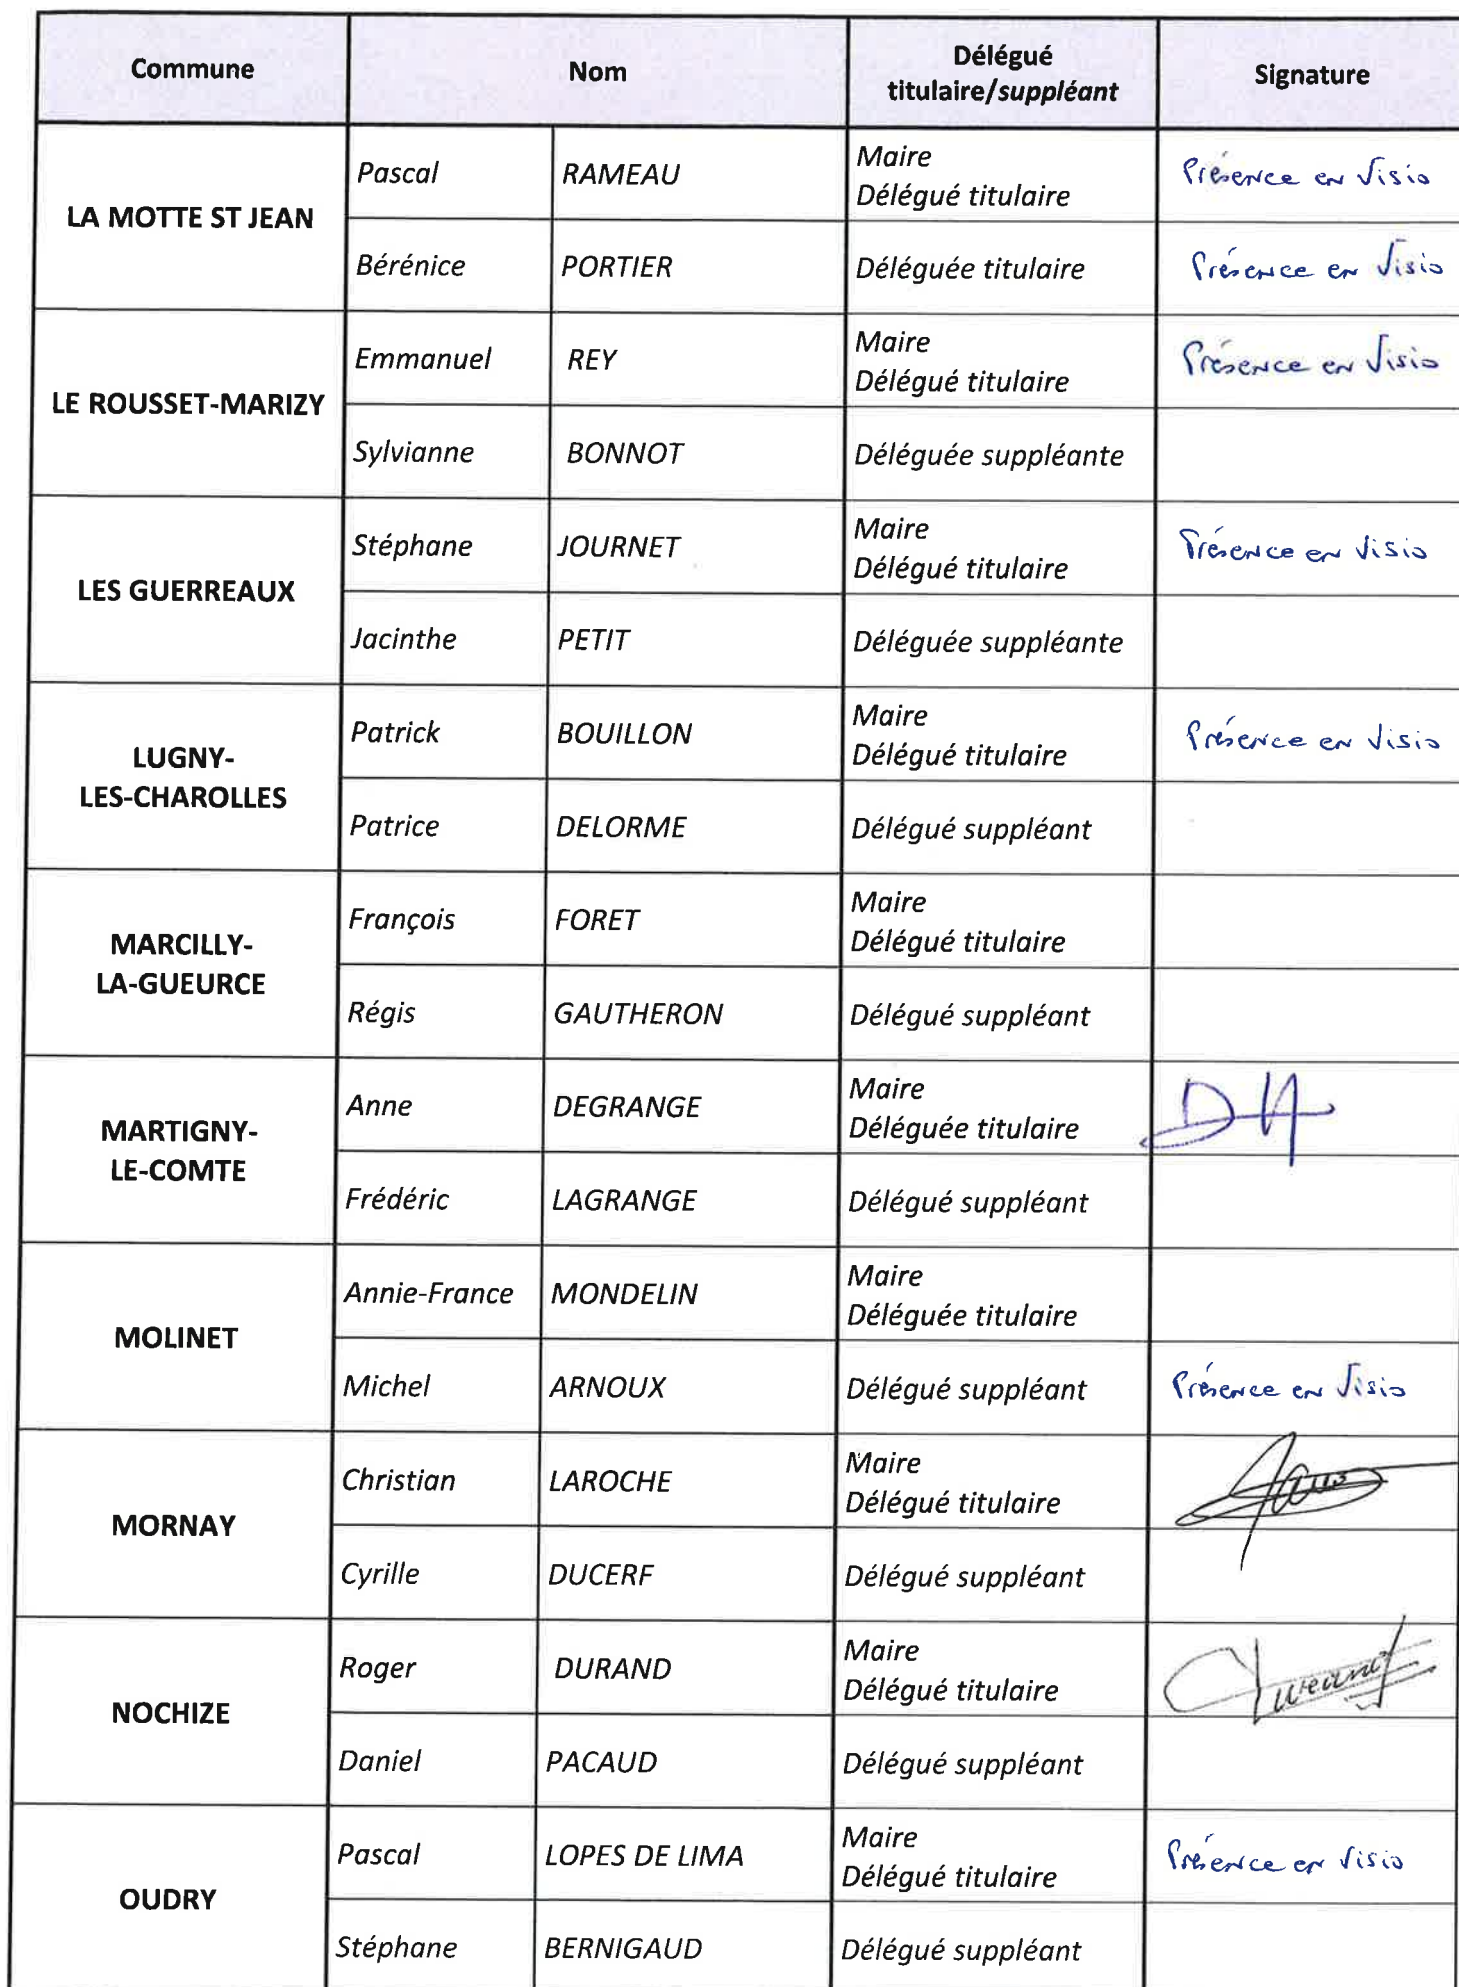 Commune
Nom
Délégué
titulaire/suppléant
Signature
LA MOTTE ST JEAN
Pascal
RAMEAU
Maire
Délégué titulaire
Présence en Visio
Bérénice
PORTIER
Déléguée titulaire
Présence en Visio
LE ROUSSET-MARIZY
Emmanuel
REY
Maire
Délégué titulaire
Présence en Visio
Sylvianne
BONNOT
Déléguée suppléante
LES GUERREAUX
Stéphane
JOURNET
Maire
Délégué titulaire
Présence en Visio
Jacinthe
PETIT
Déléguée suppléante
LUGNY-
LES-CHAROLLES
Patrick
BOUILLON
Maire
Délégué titulaire
Présence en Visio
Patrice
DELORME
Délégué suppléant
MARCILLY-
LA-GUEURCE
François
FORET
Maire
Délégué titulaire
Régis
GAUTHERON
Délégué suppléant
MARTIGNY-
LE-COMTE
Anne
DEGRANGE
Maire
Déléguée titulaire
Frédéric
LAGRANGE
Délégué suppléant
MOLINET
Annie-France
MONDELIN
Maire
Déléguée titulaire
Michel
ARNOUX
Délégué suppléant
Présence en Visio
MORNAY
Christian
LAROCHE
Maire
Délégué titulaire
Cyrille
DUCERF
Délégué suppléant
NOCHIZE
Roger
DURAND
Maire
Délégué titulaire
Daniel
PACAUD
Délégué suppléant
OUDRY
Pascal
LOPES DE LIMA
Maire
Délégué titulaire
Présence en Visio
Stéphane
BERNIGAUD
Délégué suppléant